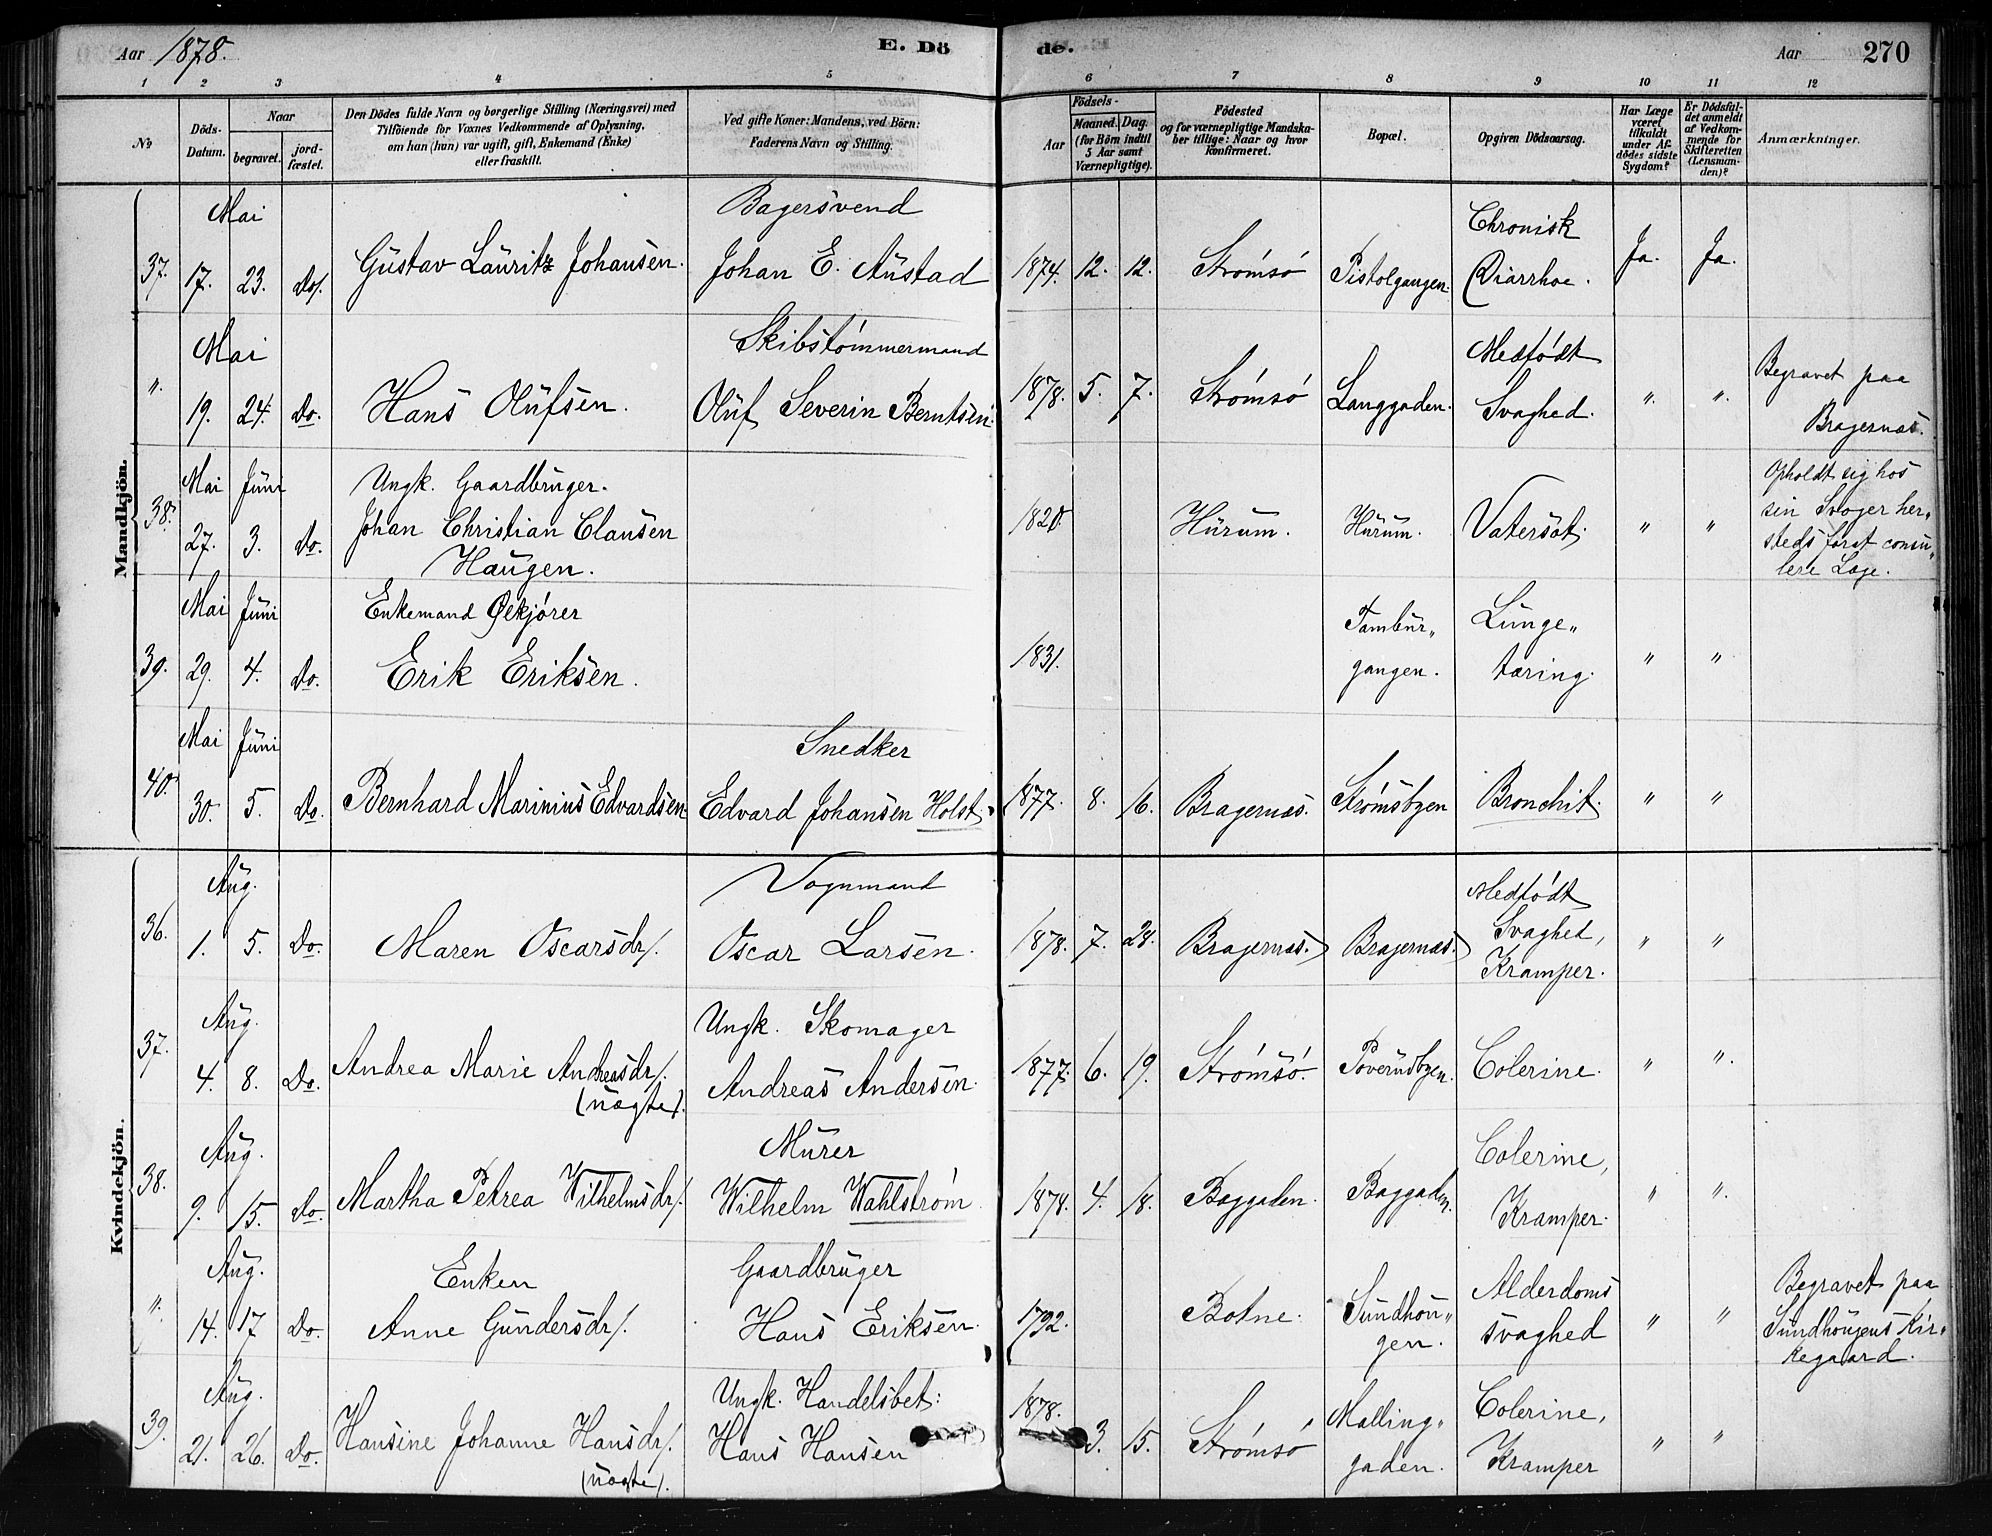 Aar 1878.
E. Dö
de.
Aar
270
1 2 3 4 5 6 7 8 9 10 11 12
No
Döds-
Datum.
Naar
begravet.
jord-
fæstet.
Den Dödes fulde Navn og borgerlige Stilling (Næringsvei) med
Tilföiende for Voxnes Vedkommende af Oplysning,
om han (hun) var ugift, gift, Enkemand (Enke)
eller fraskilt.
Ved gifte Koner: Mandens, ved Börn:
Faderens Navn og Stilling.
Födsels-
Aar
Maaned. Dag
(for Börn indtil
5 Aar samt
Værnepligtige).
Födested
og for værnepligtige Mandska-
ber tillige: Naar og hvor
konfirmeret.
Bopæl.
Opgiven Dödsaarsag.
Har Læge
været
tilkaldt
under Af-
dödes sidste
Sygdom?
Er Dödsfal-
det anmeldt
af Vedkom-
mende for
Skifteretten
(Lensman-
den)?
Anmærkninger.
Mandkjön.
Mai Bagersvend Chronisk
37. 17. 23. Do/. Gustav Lauritz Johansen. Johan E. Austad 1874. 12. 12. Strømsø Pistolgangen. Diarrhoe. Ja. Ja.
Mai Skibstømmermand Medfødt Begravet paa
". 19. 24. Do. Hans Olufsen. Oluf Severin Berntsen. 1878. 5. 7. Strømsø Langgaden. Svaghed. ". ". Bragernæs.
Mai Juni Ungk. Gaardbruger. Opholdt sig hos
38. 27. 3. Do. Johan Christian Clausen 1820. Hurum. Hurum. Vatersot. " " sin Svoger her„
Haugen. steds forat consu„
lere Læge.
Mai Juni Enkemand Ølkjører Tambur„ Lunge„
39. 29. 4. Do. Erik Eriksen. 1831. gangen. tæring. " "
Mai Juni Snedker
40. 30. 5. Do. Bernhard Marinius Edvardsen Edvard Johansen Holst. 1877. 8. 16. Bragernæs. Strømsbyen Bronchit. " "
Kvindekjön.
Aug. Vognmand Medfødt
36. 1. 5. Do. Maren Oscarsdr/. Oscar Larsen. 1878. 7. 28. Bragernæs. Bragernæs. Svaghed, " "
Kramper.
Aug. Ungk. Skomager
37. 4. 8. Do. Andrea Marie Andreasdr/. Andreas Andersen. 1877. 6. 19. Strømsø. Poverudbyen. Colerine. " ".
(uægte).
Aug. Murer Colerine,
38. 9. 15. Do. Martha Petrea Wilhelmsdr/. Wilhelm Wahlstrøm. 1878. 4. 18. Baggaden. Baggaden. Kramper. " ".
Aug. Enken Gaardbruger Alderdoms Begravet paa
". 14. 17 Do. Anne Gundersdr/. Hans Eriksen. 1792. Botne. Sundhou„ svaghed " " Sundhougens Kir„
gen. kegaard.
Aug. Ungk. Handelsbet: 1878. Malling„ Colerine,
39. 21. 26. Do. Hansine Johanne Hansdr/. Hans Hansen 3. 15. Strømsø gaden. Kramper " "
(uægte).